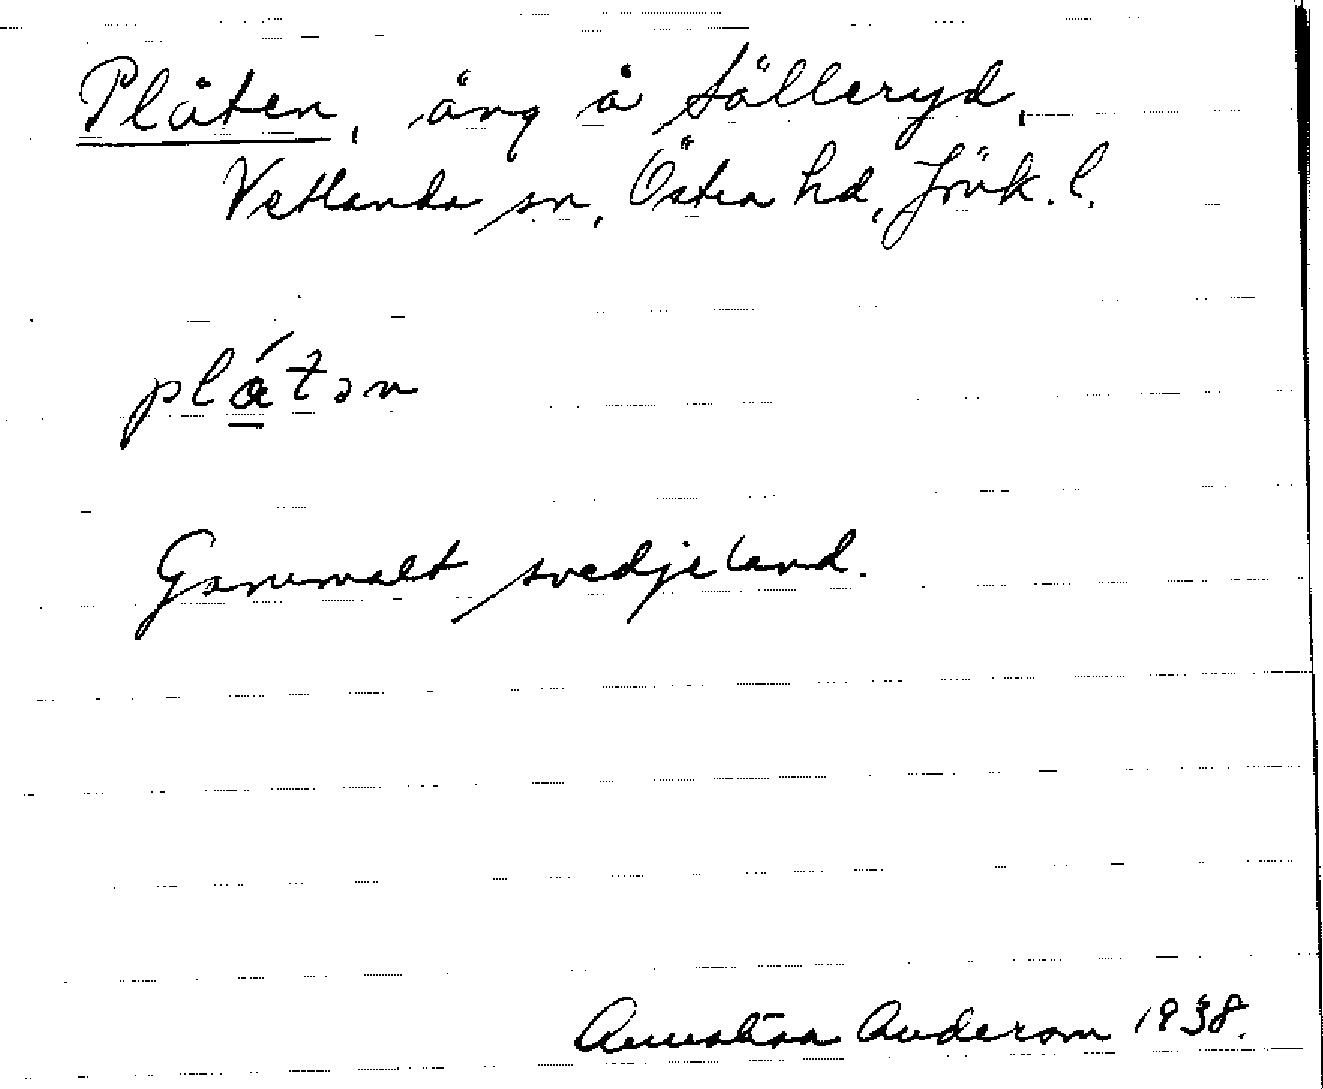 Plåten, äng å Sälleryd,
Vetlanda sn, Östra hd, Jönk. l.
plátən
Gammalt svedjeland.
Anderson 1938.